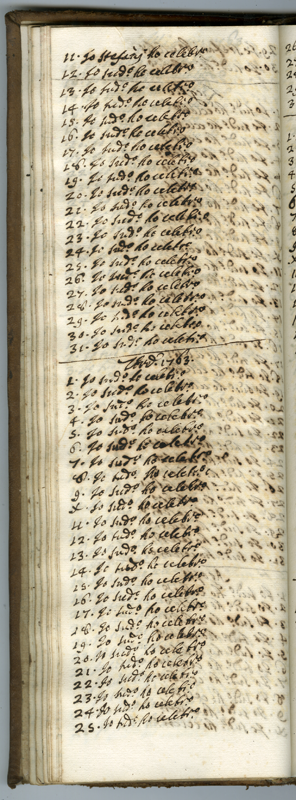 11. Io Stefani ho celebr.o
12. Io sud.o ho celebr.o
13. Io sud.o ho celebr.o
14. Io sud.o ho celebr.o
15. Io sud.o ho celebr.o
16. Io sud.o ho celebr.o
17. Io sud.o ho celebr.o
18. Io sud.o ho celebr.o
19. Io sud.o ho celebr.o
20. Io sud.o ho celebr.o
21. Io sud.o ho celebr.o
22. Io sud.o ho celebr.o
23. Io sud.o ho celebr.o
24. Io sud.o ho celebr.o
25. Io sud.o ho celebr.o
26. Io sud.o ho celebr.o
27. Io sud.o ho celebr.o
28. Io sud.o ho celebr.o
29. Io sud.o ho celebr.o
30. Io sud.o ho celebr.o
31. Io sud.o ho celebr.o
1763
1. Io sud.o ho celebr.o
2. Io sud.o ho celebr.o
3. Io sud.o ho celebr.o
4. Io sud.o ho celebr.o
5. Io sud.o ho celebr.o
6. Io sud.o ho celebr.o
7. Io sud.o ho celebr.o
8. Io sud.o ho celebr.o
9. Io sud.o ho celebr.o
X. Io sud.o ho celebr.o
11. Io sud.o ho celebr.o
12. Io sud.o ho celebr.o
13. Io sud.o ho celebr.o
14. Io sud.o ho celebr.o
15. Io sud.o ho celebr.o
16. Io sud.o ho celebr.o
17. Io sud.o ho celebr.o
18. Io sud.o ho celebr.o
19. Io sud.o ho celebr.o
20. Io sud.o ho celebr.o
21. Io sud.o ho celebr.o
22. Io sud.o ho celebr.o
23. Io sud.o ho celebr.o
24. Io sud.o ho celebr.o
25. Io sud.o ho celebr.o